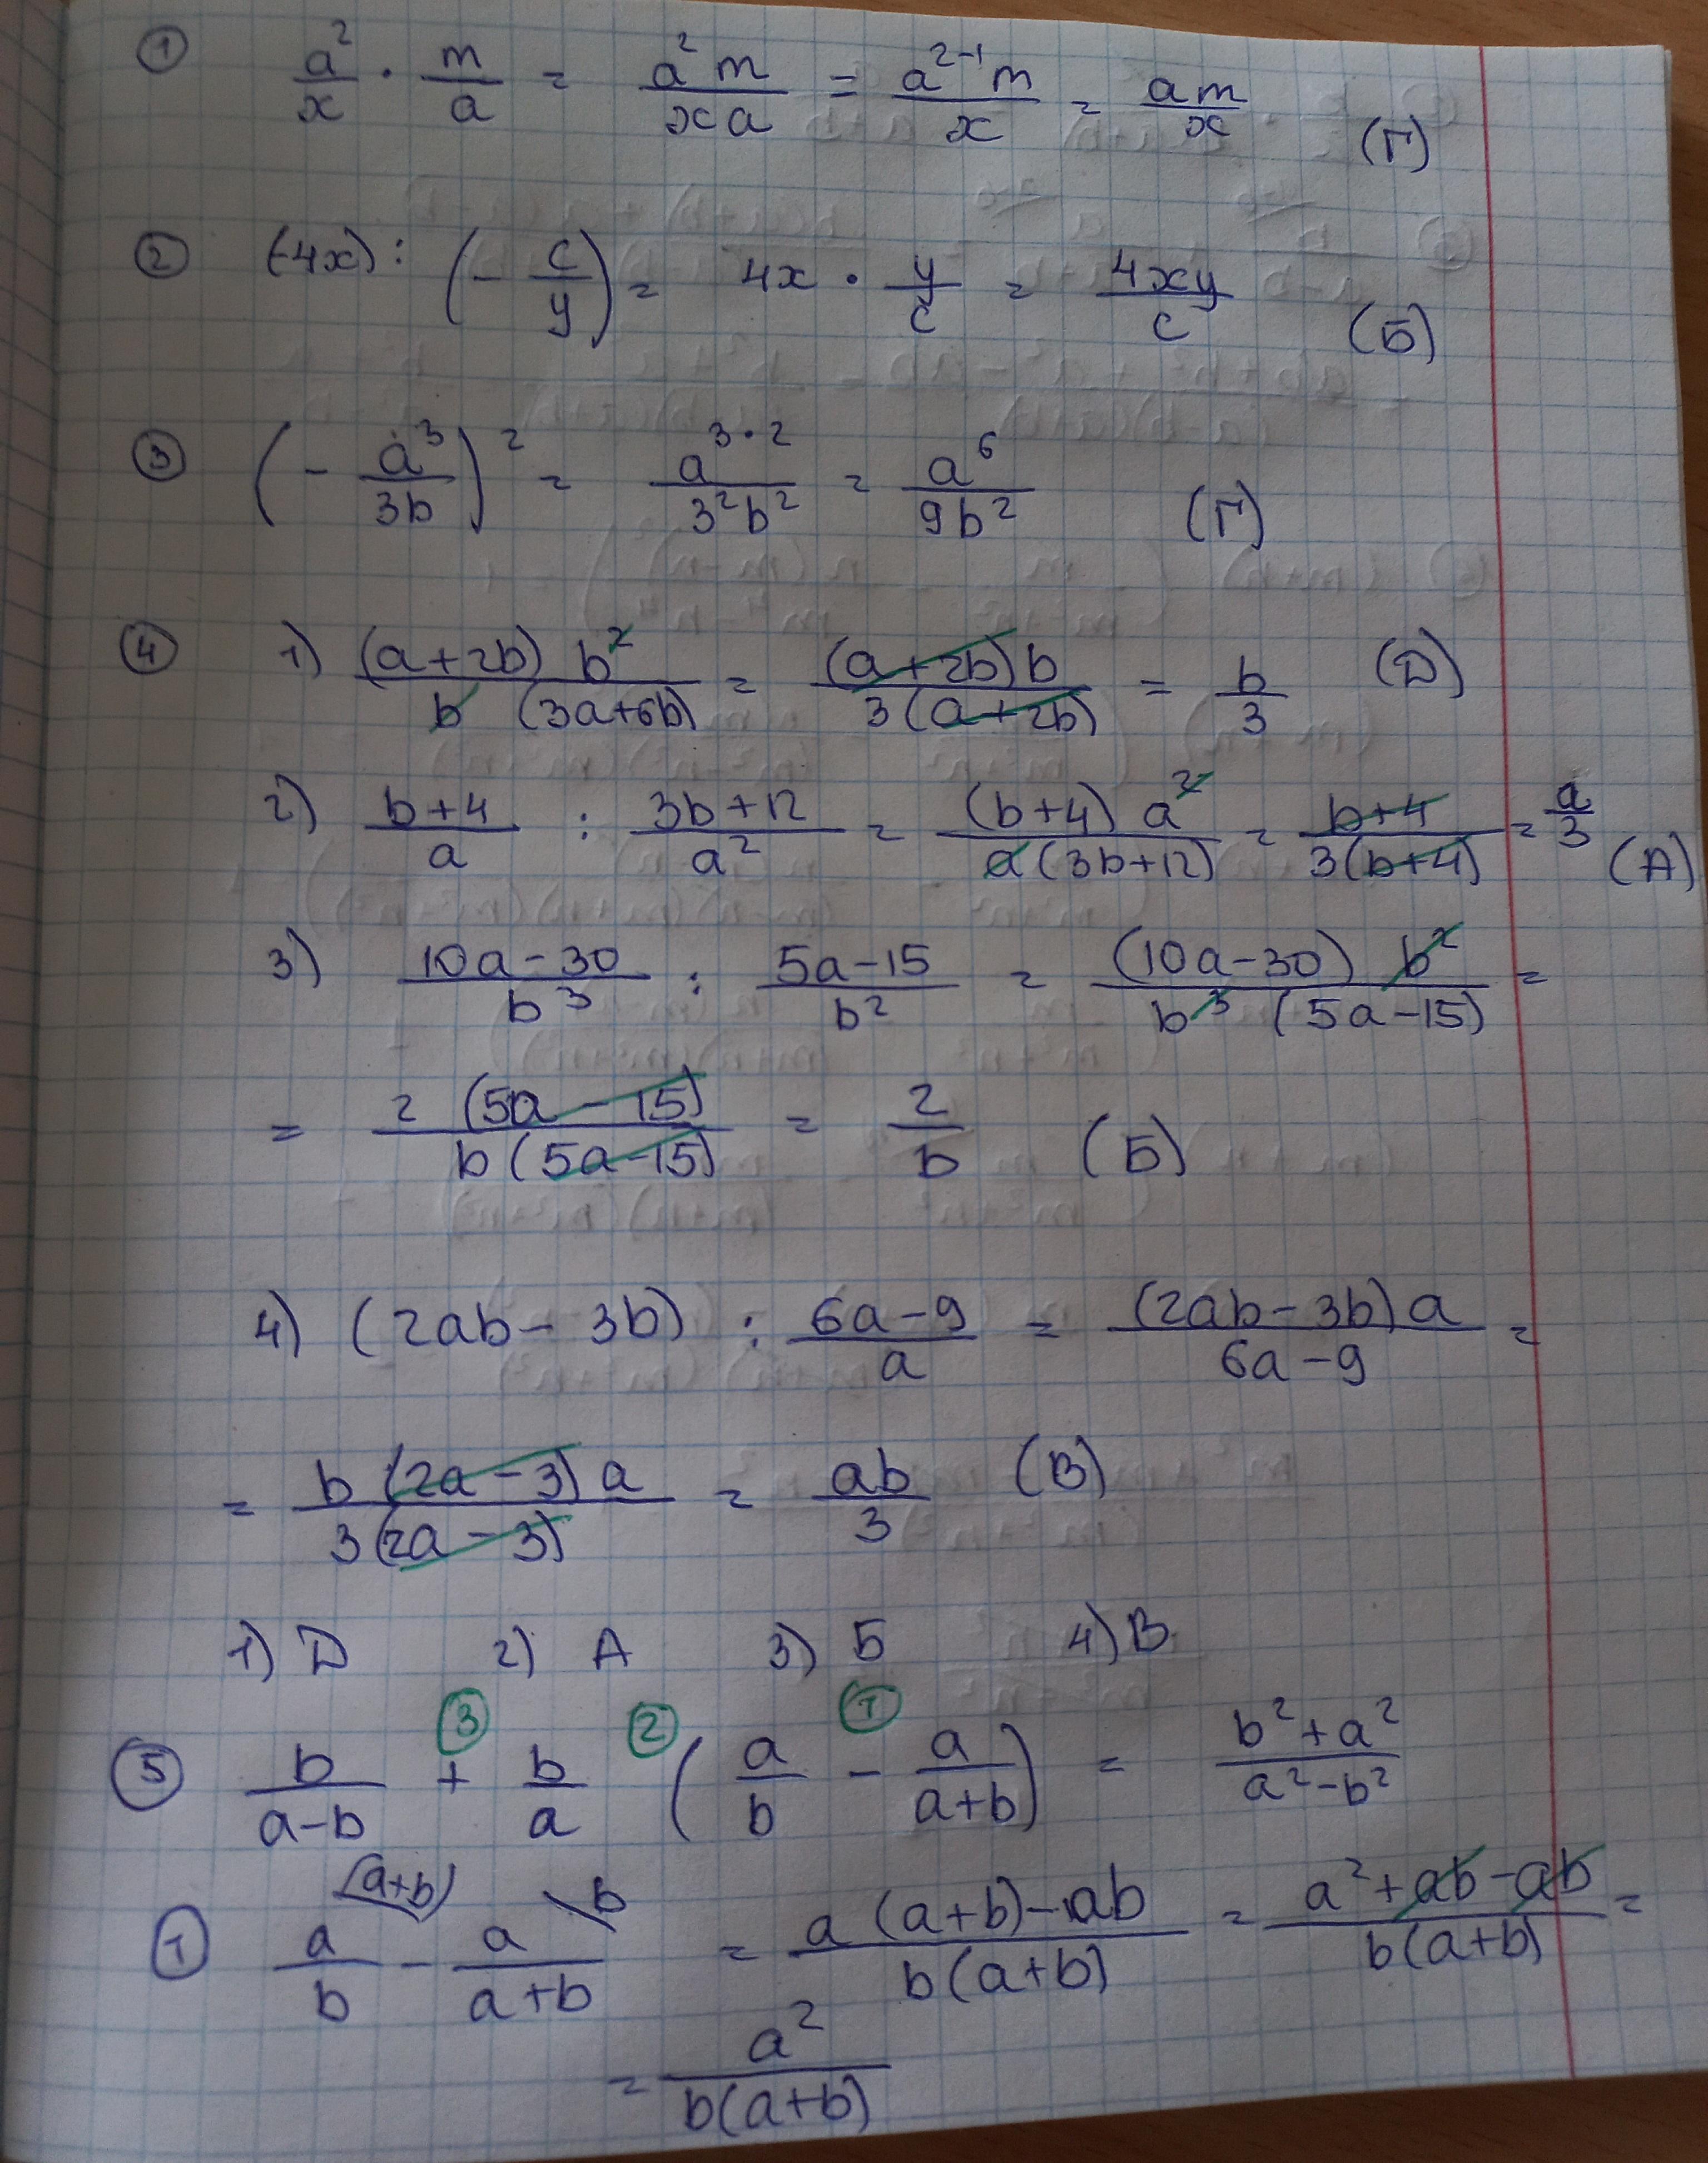 ① a²/x · m/a = a²m/xa = a²⁻¹m/x = am/x (Г)
② (-4x) : (- c/y) = 4x · y/c = 4xy/c (Б)
③ (- a³/3b)² = a³·²/3²b² = a⁶/9b² (Г)
④ 1) (a+2b) b²/b (3a+6b) = (a+2b)b/3(a+2b) = b/3 (D)
2) b+4/a : 3b+12/a² = (b+4) a²/a(3b+12) = b+4/3(b+4) = a/3 (A)
3) 10a-30/b³ : 5a-15/b² = (10a-30) b²/b³ (5a-15) =
= 2 (5a-15)/b(5a-15) = 2/b (Б)
4) (2ab-3b) : 6a-9/a = (2ab-3b)a/6a-9 =
= b(2a-3)a/3(2a-3) = ab/3 (B)
1) D 2) A 3) Б 4) B
③ ② ①
⑤ b/a-b + b/a (a/b - a/a+b) = b²+a²/a²-b²
(a+b) b
① a/b - a/a+b = a(a+b)-ab/b(a+b) = a²+ab-ab/b(a+b) =
= a²/b(a+b)